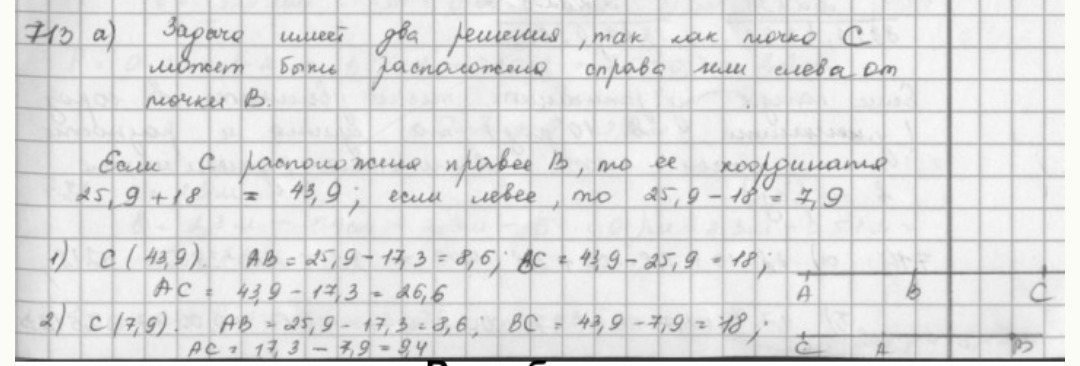 713 а) Задача имеет два решения, так как точка C
может быть расположена справа или слева от
точки B.
Если C расположена правее B, то ее координата
25,9 + 18 = 43,9; если левее, то 25,9 - 18 = 7,9
1) C (43,9). AB = 25,9 - 17,3 = 8,6; BC = 43,9 - 25,9 = 18;
AC = 43,9 - 17,3 = 26,6
A B C
2) C (7,9). AB = 25,9 - 17,3 = 8,6; BC = 43,9 - 7,9 = 18;
AC = 17,3 - 7,9 = 9,4
C A B